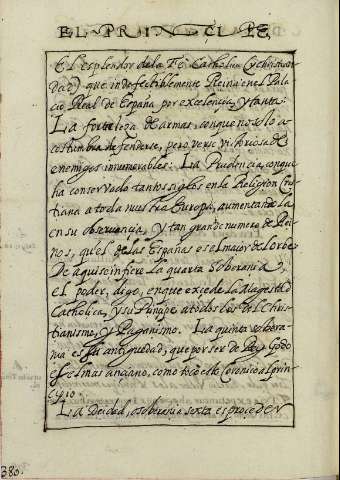 EL PRINCIPE
El esplendor de la Fe Catholica y christian
dad que indefectiblemente Reina en el Pala
cio Real de España por excelencia, y tanta
La fortaleza de armas, conque no solo a
costumbra defenderse, pero verse victoriosa de
enemigos innumerables: La Prudencia, conque
ha conservado tantos siglos en la Religion Cris
tiana a toda nuestra Europa, aumentandola
en su observancia, y tan grande numero de Rei
nos, qu'el de las Españas es el maior de l'orbe
De aqui se infiere la quarta Soberania,
el poder, digo, en que excede la Magestad
Catholica, y su Principe a todos los del Chris
tianismo, y Paganismo. La quinta sobera
nia es su antiguedad, que por ser de Rey Godo
es el mas anciano, como toco el e Coronico al prin
cipio.
La deidad, o soberania sexta es proceder
380.